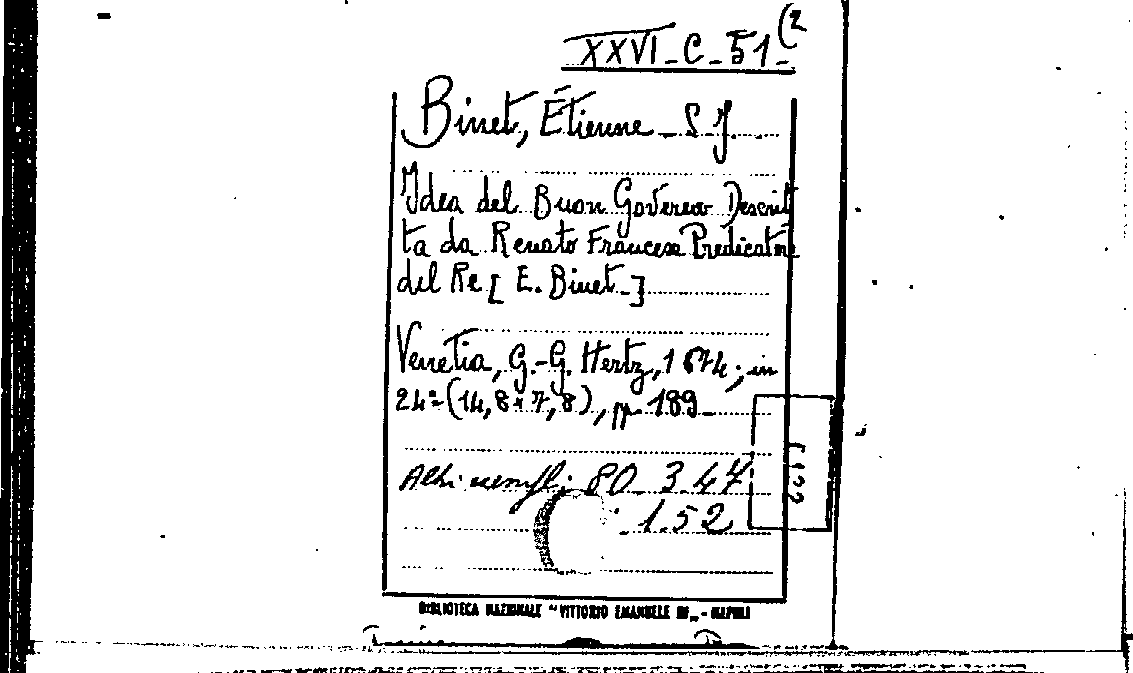 XXVI-C-51(2
Binet, Étienne - S.J.
Idea del Buon Governo Descrit
ta da Renato Francese Predicatore
del Re [E. Binet-]
Venetia, G.-G. Hertz, 1674; in
24°-(14,8x7,8), pp. 189-
Altri esempl: 80 3.47
1.52
BIBLIOTECA NAZIONALE "VITTORIO EMANUELE III" - NAPOLI